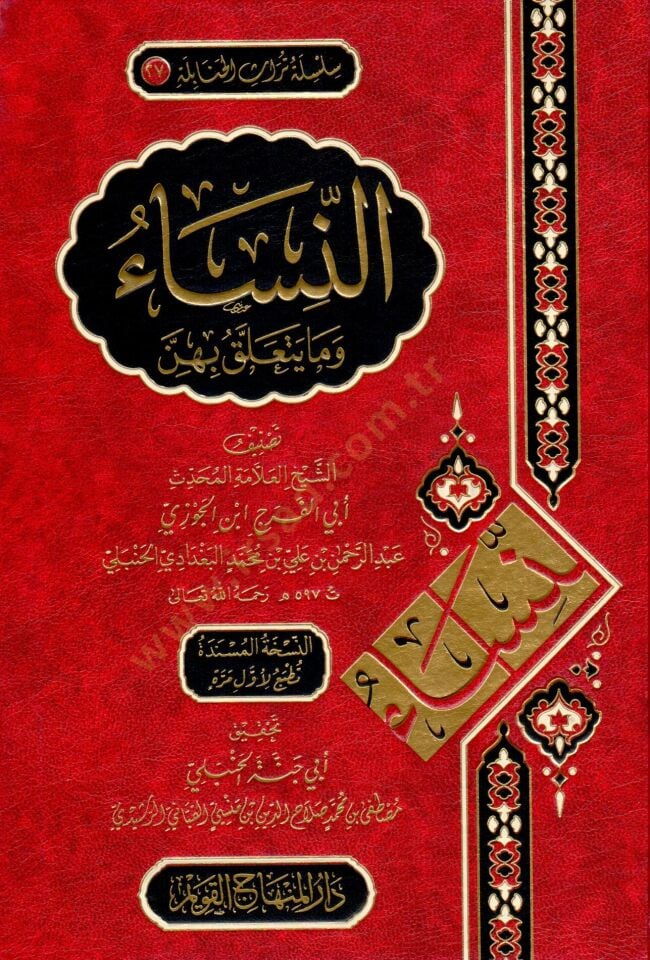 سِلْسِلَةُ تُرَاثِ الحَنَابِلَةِ ٤٧
النِّسَاءُ
وَمَا يَتَعَلَّقُ بِهِنَّ
تَصْنِيفُ
الشَّيْخِ العَلَّامَةِ المُحَدِّثِ
أَبِي الفَرَجِ ابْنِ الجَوْزِيِّ
عَبْدِ الرَّحْمَنِ بْنِ عَلِيِّ بْنِ مُحَمَّدٍ البَغْدَادِيِّ الحَنْبَلِيِّ
ت ٥٩٧ هـ رَحِمَهُ اللهُ تَعَالَى
النِّسَاءُ
النُّسْخَةُ المُسْنَدَةُ
تُطْبَعُ لِأَوَّلِ مَرَّةٍ
تَحْقِيقُ
أَبِي جَنَّةَ الحَنْبَلِيِّ
مُصْطَفَى بْنِ مُحَمَّدِ صَلَاحِ الدِّينِ بْنِ مَنْسِي القَبَّانِيِّ الرَّشِيدِيِّ
دَارُ المِنْهَاجِ القَوِيمِ